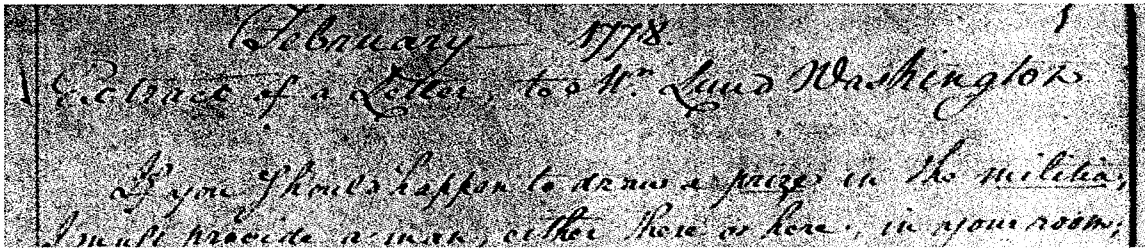 February 1778.
Extract of a Letter, to Mr. Lund Washington
If you should happen to draw a prize in the militia,
I must provide a man, either there or here, in your room;